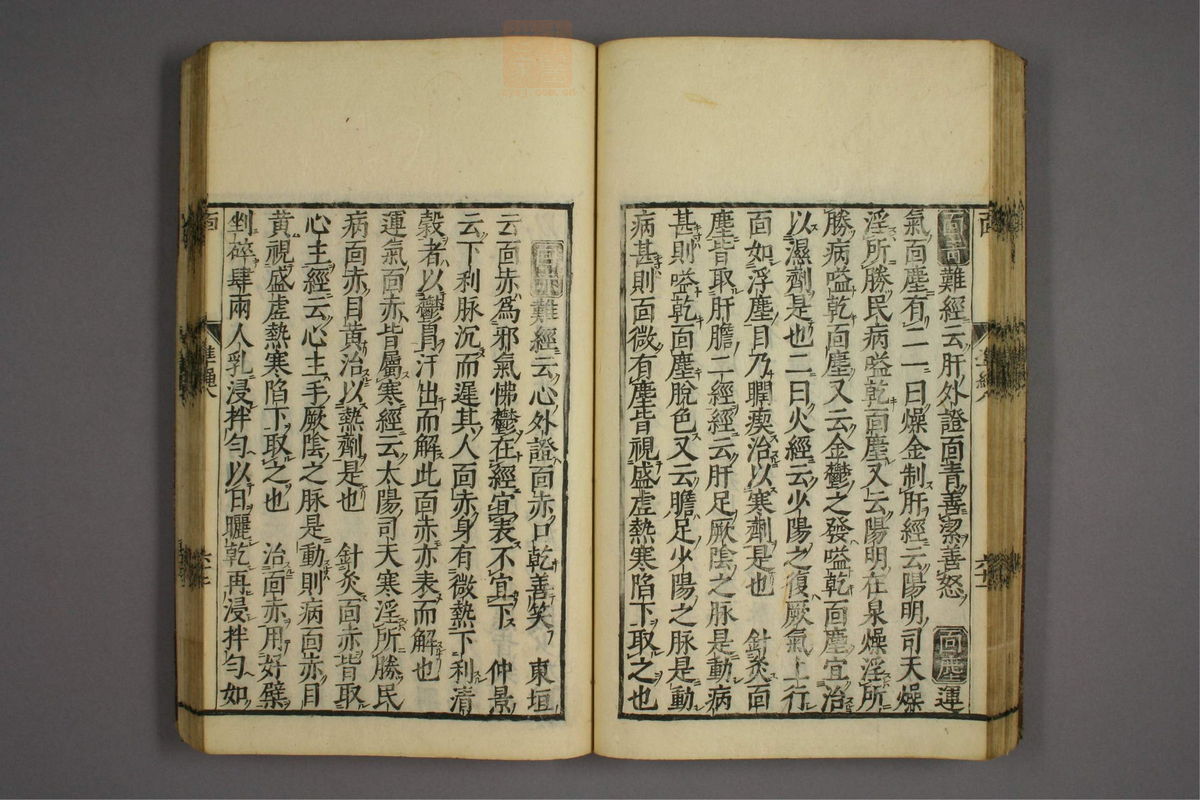 面青難經云肝外證面青善潔善怒 面塵運
氣面塵有二一曰燥金制肝經云陽明司天燥
淫所勝民病嗌乾面塵又云陽明在泉燥淫所
勝病嗌乾面塵又云金鬱之發嗌乾面塵宜治
以濕劑是也二曰火經云少陽之復厥氣上行
面如浮塵目乃瞤瘈治以寒劑是也 針灸面
塵皆取肝膽二經經云肝足厥陰之脉是動病
甚則嗌乾面塵脫色又云膽足少陽之脉是動
病甚則面微有塵皆視盛虛熱寒陷下取之也
面赤難經云心外證面赤口乾善笑 東垣
云面赤爲邪氣怫鬱在經宜表不宜下 仲景
云下利脉沉而遲其人面赤身有微熱下利清
穀者以鬱冒汗出而解此面赤亦表而解也
運氣面赤皆屬寒經云太陽司天寒淫所勝民
病面赤目黃治以熱劑是也 針灸面赤皆取
心主經云心主手厥陰之脉是動則病面赤目
黃視盛虛熱寒陷下取之也 治面赤用好檗
剉碎肆兩人乳浸拌勻以日曬乾再浸拌勻如
面
準繩八